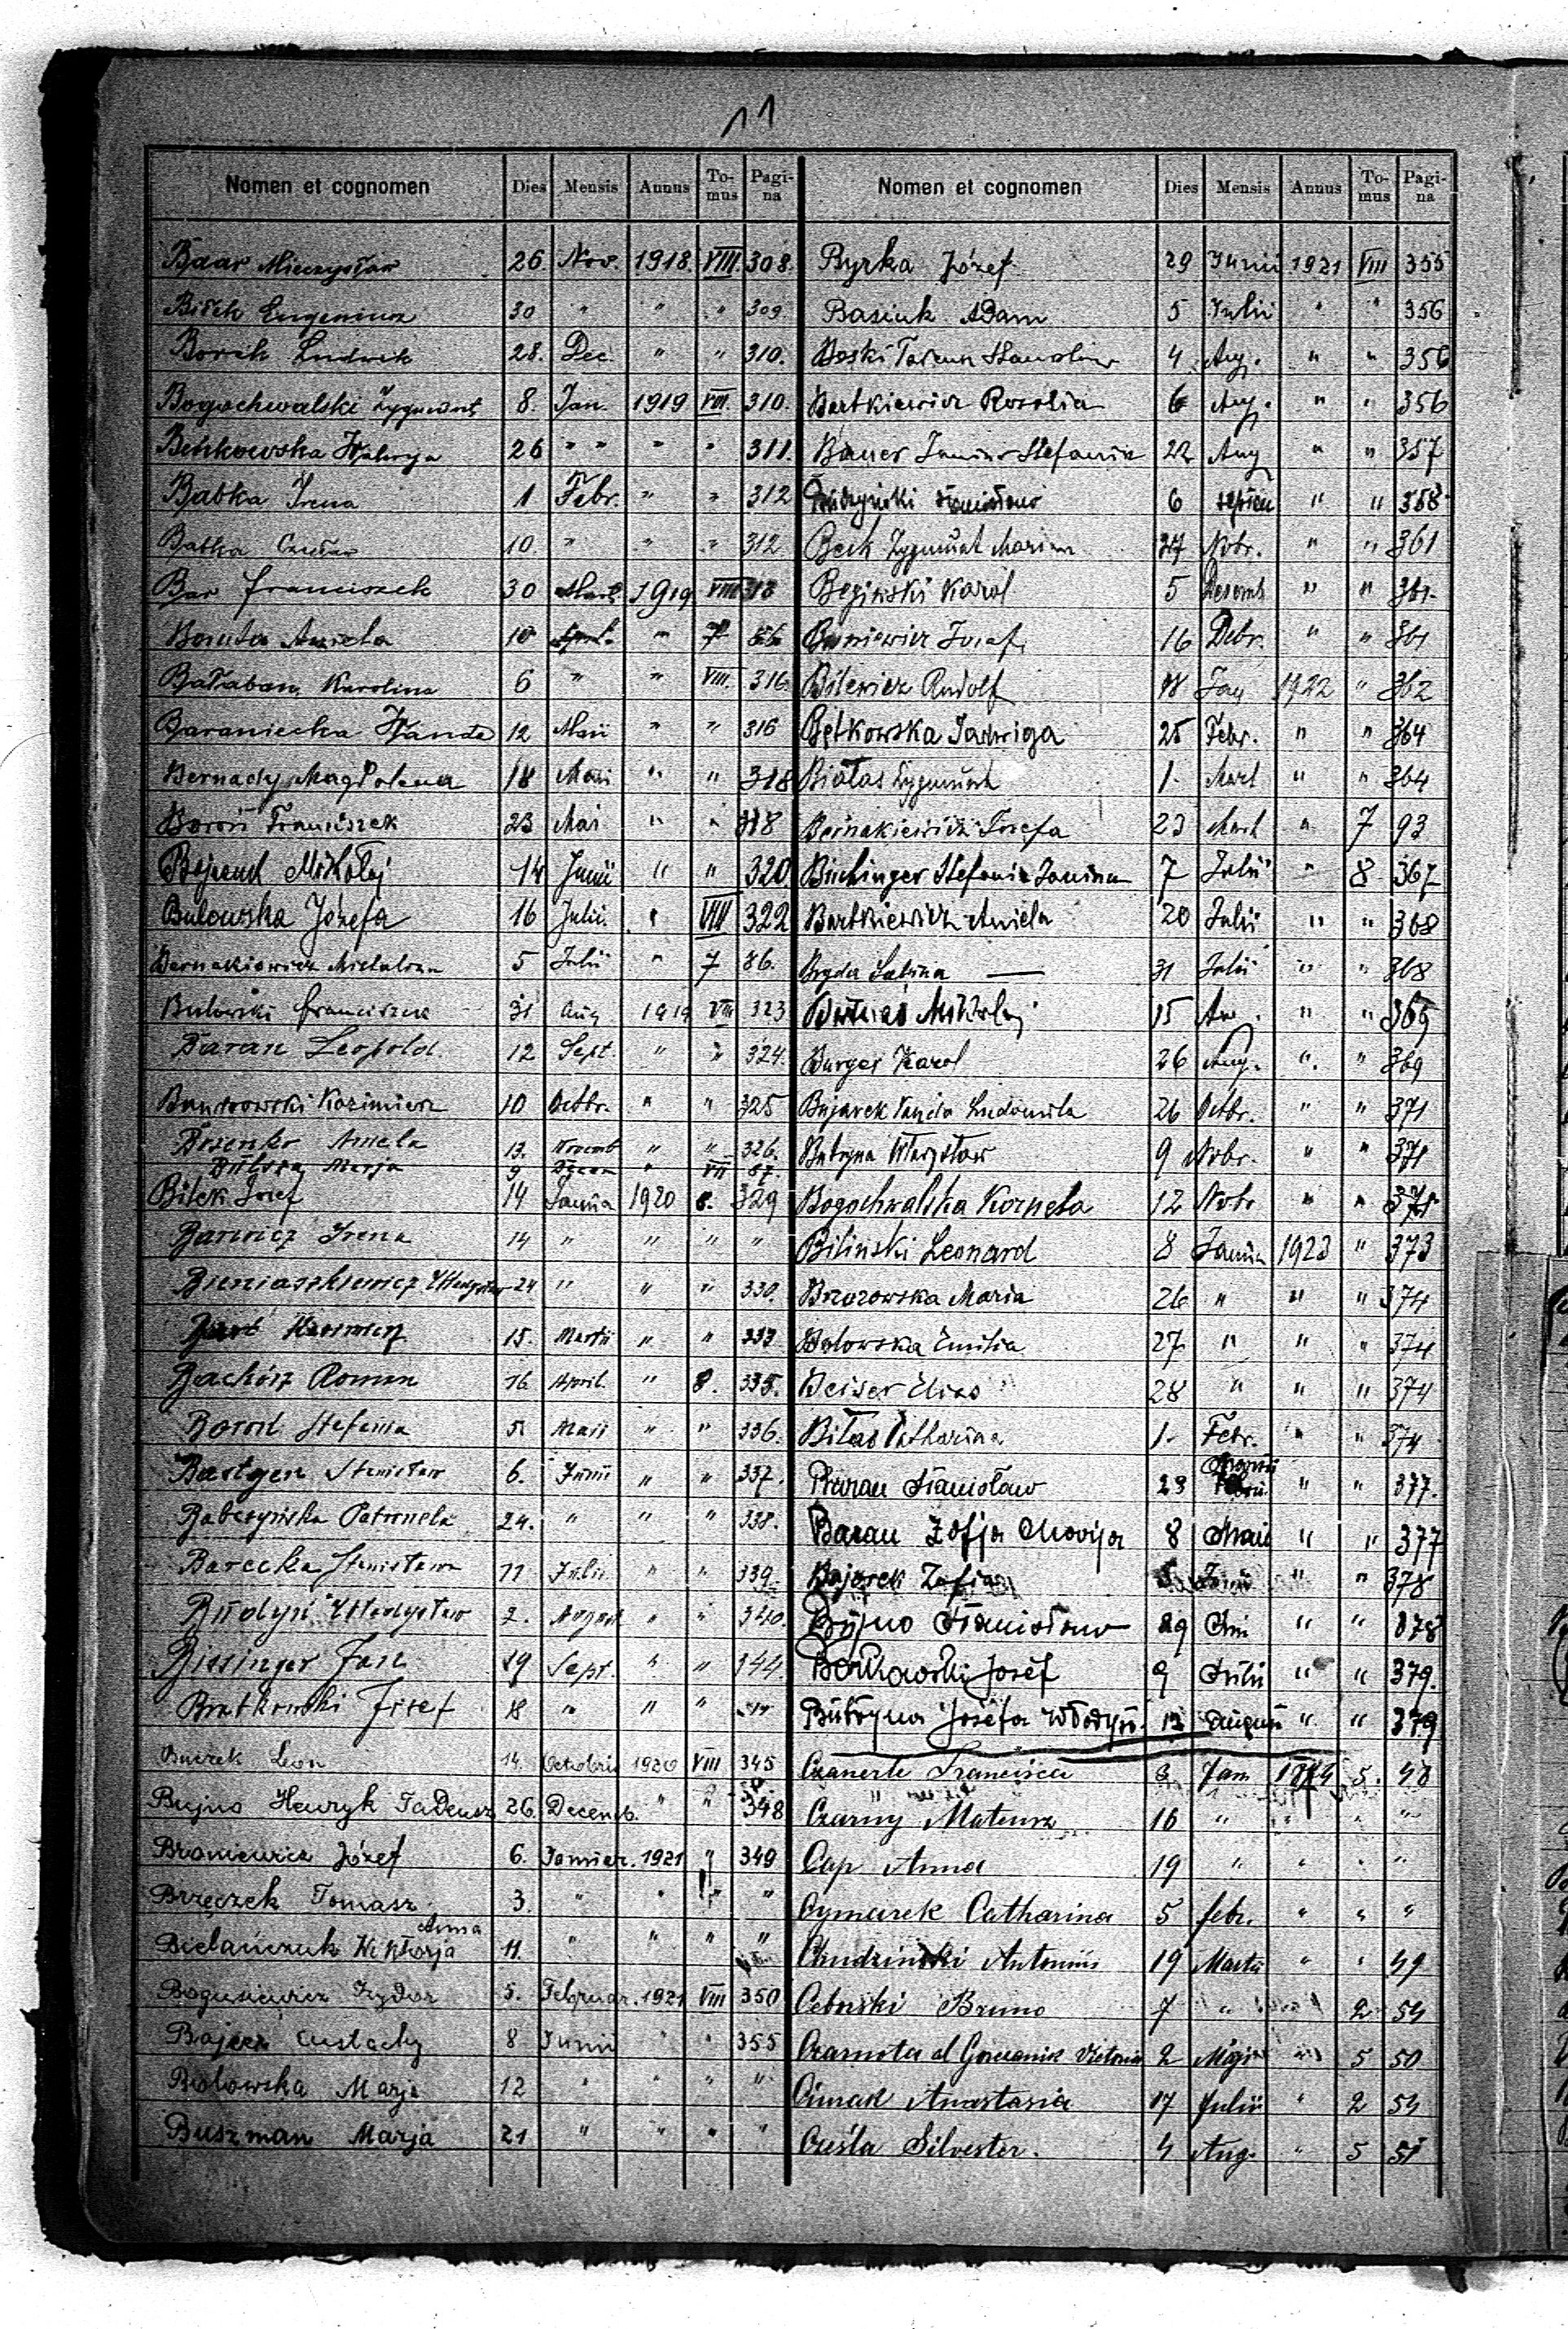 11
Nomen et cognomen Dies Mensis Annus To-mus Pagi-na
Baar Mieczysław 26. Nov. 1918. VIII. 308.
Bitek Eugeniusz 30 " " " 309.
Borek Ludwik 28. Dec. " " 310.
Bogochwalski Zygmunt 8. Jan. 1919 VIII. 310.
26 " " " " 311.
Babka Irena 1 Febr. " " 312
Babka 10. " " " 312
Bar Franciszek 30 Mart. 1919 VIII 313
Boruta Aniela 10 April. " 7
Bałaban Karolina 6 " " VIII. 316.
Baraniecka Wanda 12 Maii " " 316
Bernady Magdalena 18 Maii " " 318
Boroń Franciszek 23 Mai " " 318
Mikołaj 14 Junii " " 320.
Bulowska Józefa 16 Julii. " VIII 322
Bernakiewicz 5 Julii " 7 86.
Bulowski Franciszek 31 Aug 1919 VIII 323
Baran Leopold. 12 Sept. " " 324.
Kazimierz 10 Octbr. " " 325
Aniela 13. Novemb " " 326.
Marja 9 " VII 87.
Bilek Josef 14 Janua 1920 8. 329
Barwicz Irena 14 " " " "
Bieniaszkiewicz Władysław 24 " " " 330.
Kazimierz 15. Martii " " 333
Bachórz Roman 16 April. " 8. 335.
Stefania 5. Maii " " 336.
Bartgen Stanisław 6. Junii " " 337.
Babczyńska Petronela 24. " " " 338.
Barecka Stanisława 11 Julii " " 339
Budyń Władysław 2. August " " 340.
Bissinger Jan 19 Sept. " " 344.
Bratkowski Jósef 18 " " " "
Buczek Leon 14. Octobris 1920 VIII 345
Bujno Henryk Tadeusz 26. Decemb. " " 348
Broniewicz Józef 6. Januar. 1921 " 349
Brzęczek Tomasz 3. " " " "
Bielańczuk Wiktorja Anna 11. " " " "
Bogusiewicz Izydor 5. Februar. 1921 VIII 350
Bajcer Eustachy 8 Junii " " 355
Bolowska Marja 12 " " " "
Buszman Marja 21 " " " "
Nomen et cognomen Dies Mensis Annus To-mus Pagi-na
Byrka Józef 29 Junii 1921 VIII 355
Basiuk Adam 5 Julii " " 356
Boski Tadeusz Stanisław 4 Aug. " " 356
Bartkiewicz Rozalia 6 Aug. " " 356
Bauer Janina Stefania 22 Aug " " 357
Stanisław 6 " " 358
Beck Zygmunt Marian Nobr. " " 361
Begiński Karol 5 Decemb " " 361.
Josef 16 Debr. " " 361
Bilewicz Rudolf 18 Jan 1922 " 362
Bętkowska Jadwiga 25 Febr. " " 364
Białas Zygmunt 1. Mart " " 364
Bernakiewicz Josefa 23 Mart " 7 93
Buchinger Stefania Janina 7 Julii " 8 367
Bartkiewicz Aniela 20 Julii " " 368
Bryda Sabina — 31 Julii " " 368
Mikołaj 15 Au. " " 369
Burger Karol 26 Aug. " " 369
Bujarek Ludomiła 26 Octbr. " " 371
Butryna Władysław 9 Nobr. " " 371
Bogochwalska Kornela 12 Nobr " " 371
Biliński Leonard 8 Janua 1923 " 373
Brzozowska Maria 26 " " " 374
Bolowska Emilia 27 " " " 374
Beiser Elias 28 " " " 374
Bilas Catharina 1. Febr. " " 374
Baran Stanisław 23 " " 377.
Baran Zofja Marija 8 Maii " " 377
Bajorek Zofia " " 378
Bujno Stanisław 29 " " 378
Borkowski Josef 9 Julii " " 379.
Butryna Josefa Władysł. 12 August " " 379
Czanerle Francisca 3 Jan. 1914 5. 48
Czarny Mateusz 16 " " " "
Cap Anna 19 " " " "
Cymarek Catharina 5 febr. " " "
Chudzinski Antonius 19 Martii " " 49
Cebulski Bruno 7 " " 2 54
Czarnota al Gorcanik Victoria 2 Maji " 5 50
Cimak Anastasia 17 Julii " 2 54
Cieśla Silvester. 4 Aug. " 5 51